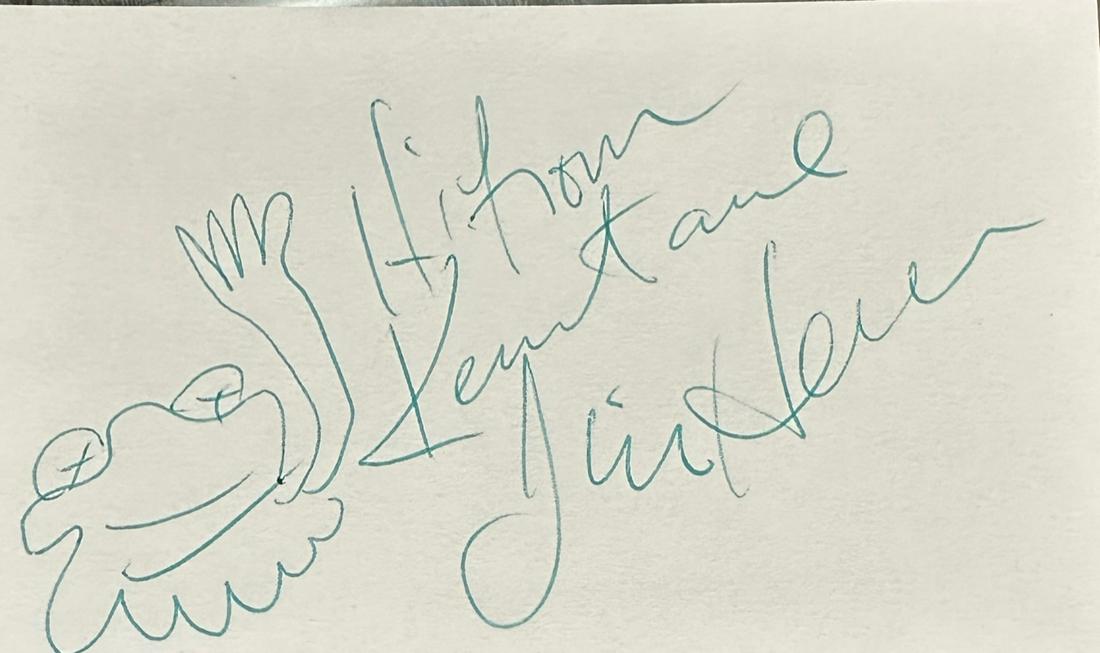 Hi from
Kermit and
Jim Henson